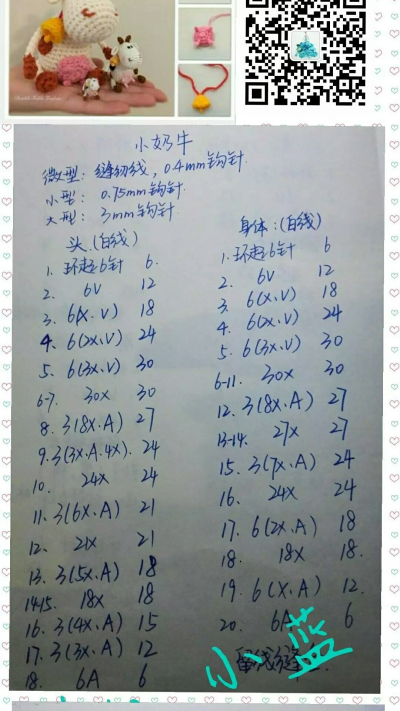 小奶牛
微型：缝纫线，0.4mm钩针.
小型：0.75mm钩针
大型：3mm钩针
头.(白线)
1. 环起6针 6.
2. 6V 12
3. 6(X.V) 18
4. 6(2X.V) 24
5. 6(3X.V) 30
6-7. 30X 30
8. 3(8X.A) 27
9. 3(3X.A.4X). 24
10. 24X 24
11. 3(6X.A) 21
12. 21X 21
13. 3(5X.A) 18
14-15. 18X 18
16. 3(4X.A) 15
17. 3(3X.A) 12
18. 6A 6
身体：(白线)
1. 环起6针 6
2. 6V 12
3. 6(X.V) 18
4. 6(2X.V) 24
5. 6(3X.V) 30
6-11. 30X 30
12. 3(8X.A) 27
13-14. 27X 27
15. 3(7X.A) 24
16. 24X 24
17. 6(2X.A) 18
18. 18X 18.
19. 6(X.A) 12.
20. 6A 6
留线缝
小蓝